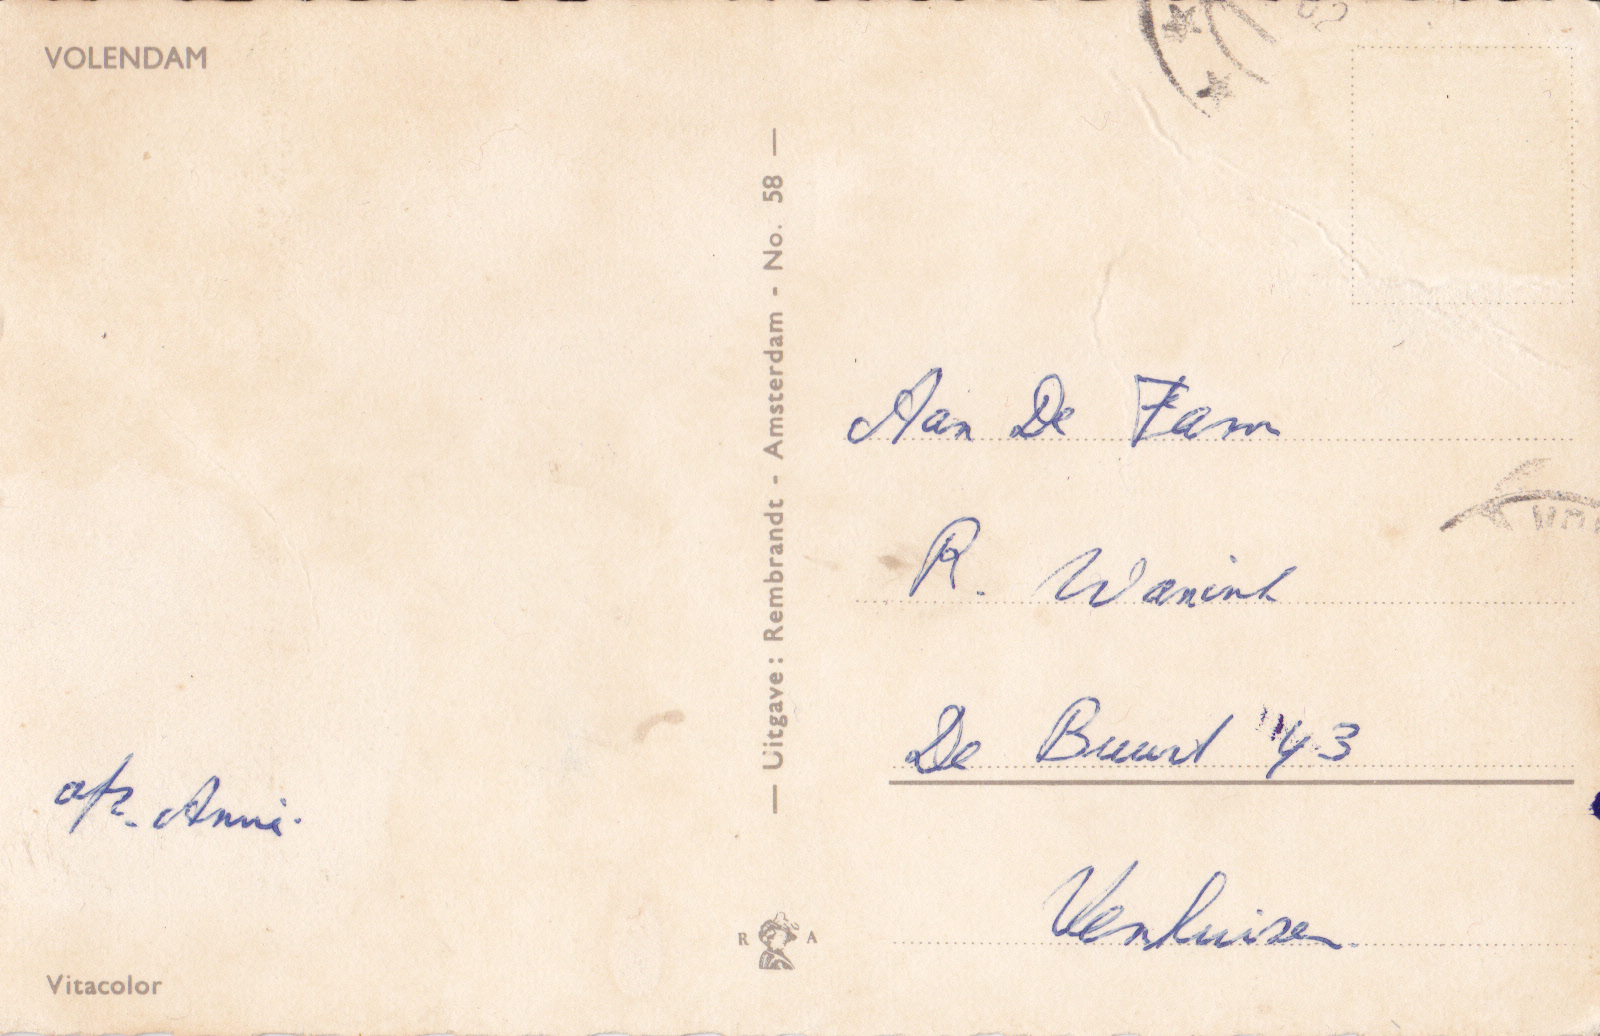 VOLENDAM
62
— Uitgave: Rembrandt - Amsterdam - No. 58 —
Aan De Fam
R. Wanink
De Buurt 43
Venhuisen.
afz. Annie.
R A
Vitacolor